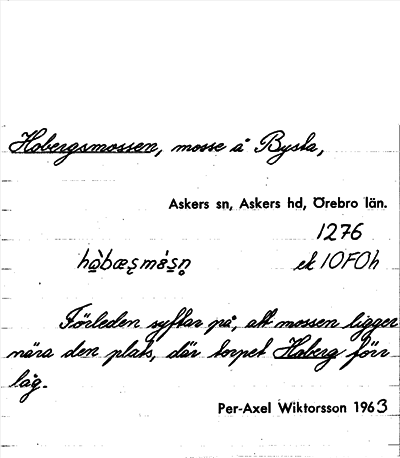 Hobergsmossen, mosse å Bysta,
Askers sn, Askers hd, Örebro län.
1276
ek 10F0h
Förleden syftar på, att mossen ligger
nära den plats, där torpet Hoberg förr
låg.
Per-Axel Wiktorsson 1963